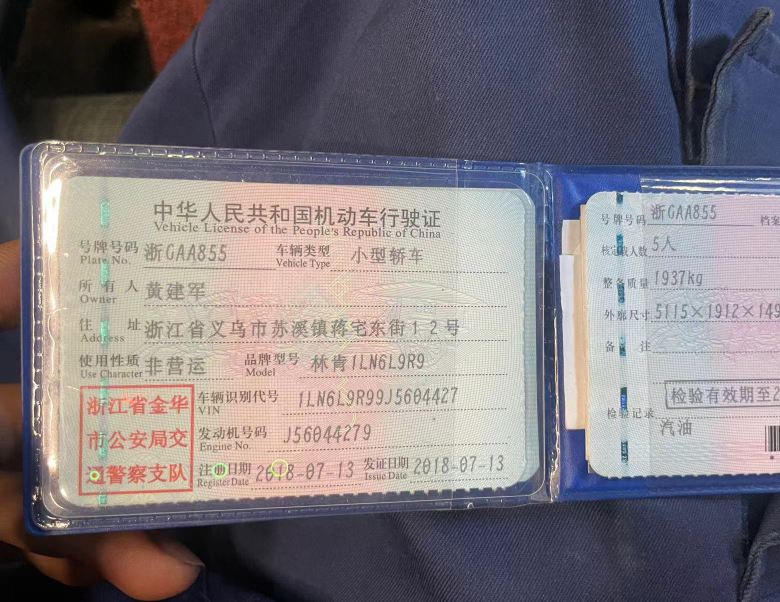 中华人民共和国机动车行驶证
Vehicle License of the People's Republic of China
号牌号码 浙GAA855 车辆类型 小型轿车
Plate No. Vehicle Type
所有人 黄建军
Owner
住址 浙江省义乌市苏溪镇蒋宅东街12号
Address
使用性质 非营运 品牌型号 林肯1LN6L9R9
Use Character Model
浙江省金华
市公安局交
通警察支队
车辆识别代号 1LN6L9R99J5604427
VIN
发动机号码 J56044279
Engine No.
注册日期 2018-07-13 发证日期 2018-07-13
Register Date Issue Date
号牌号码 浙GAA855 档案
核定载人数 5人
整备质量 1937kg
外廓尺寸 5115×1912×149
备注
检验有效期至2
检验记录
汽油